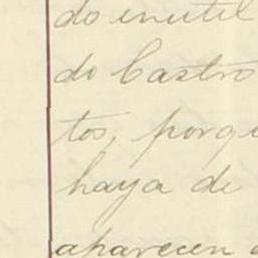 do inutil
do Castro
tos, porqu
haya de
aparecen